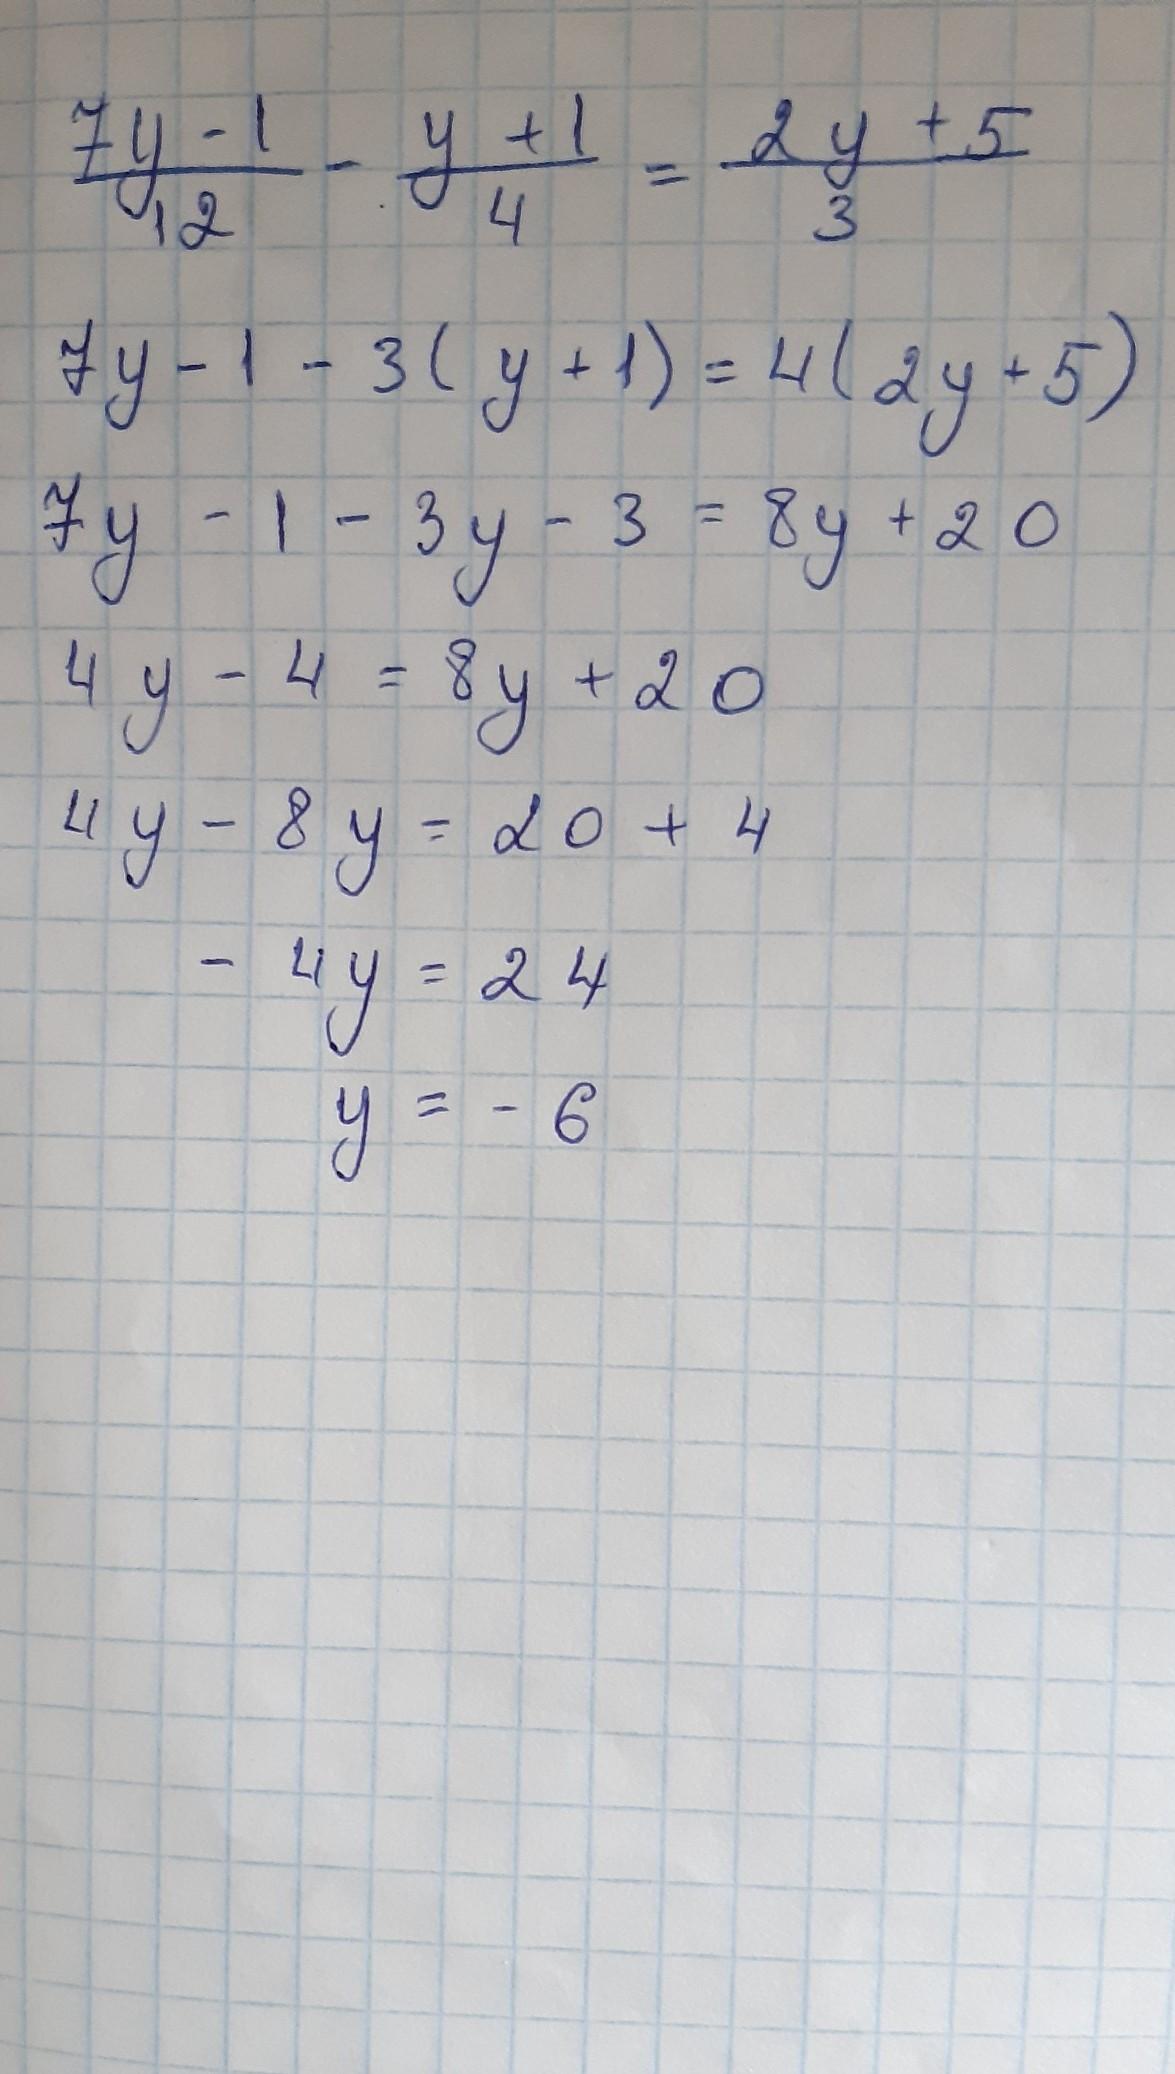 7y - 1 / 12 - y + 1 / 4 = 2y + 5 / 3
7y - 1 - 3(y + 1) = 4(2y + 5)
7y - 1 - 3y - 3 = 8y + 20
4y - 4 = 8y + 20
4y - 8y = 20 + 4
- 4y = 24
y = - 6